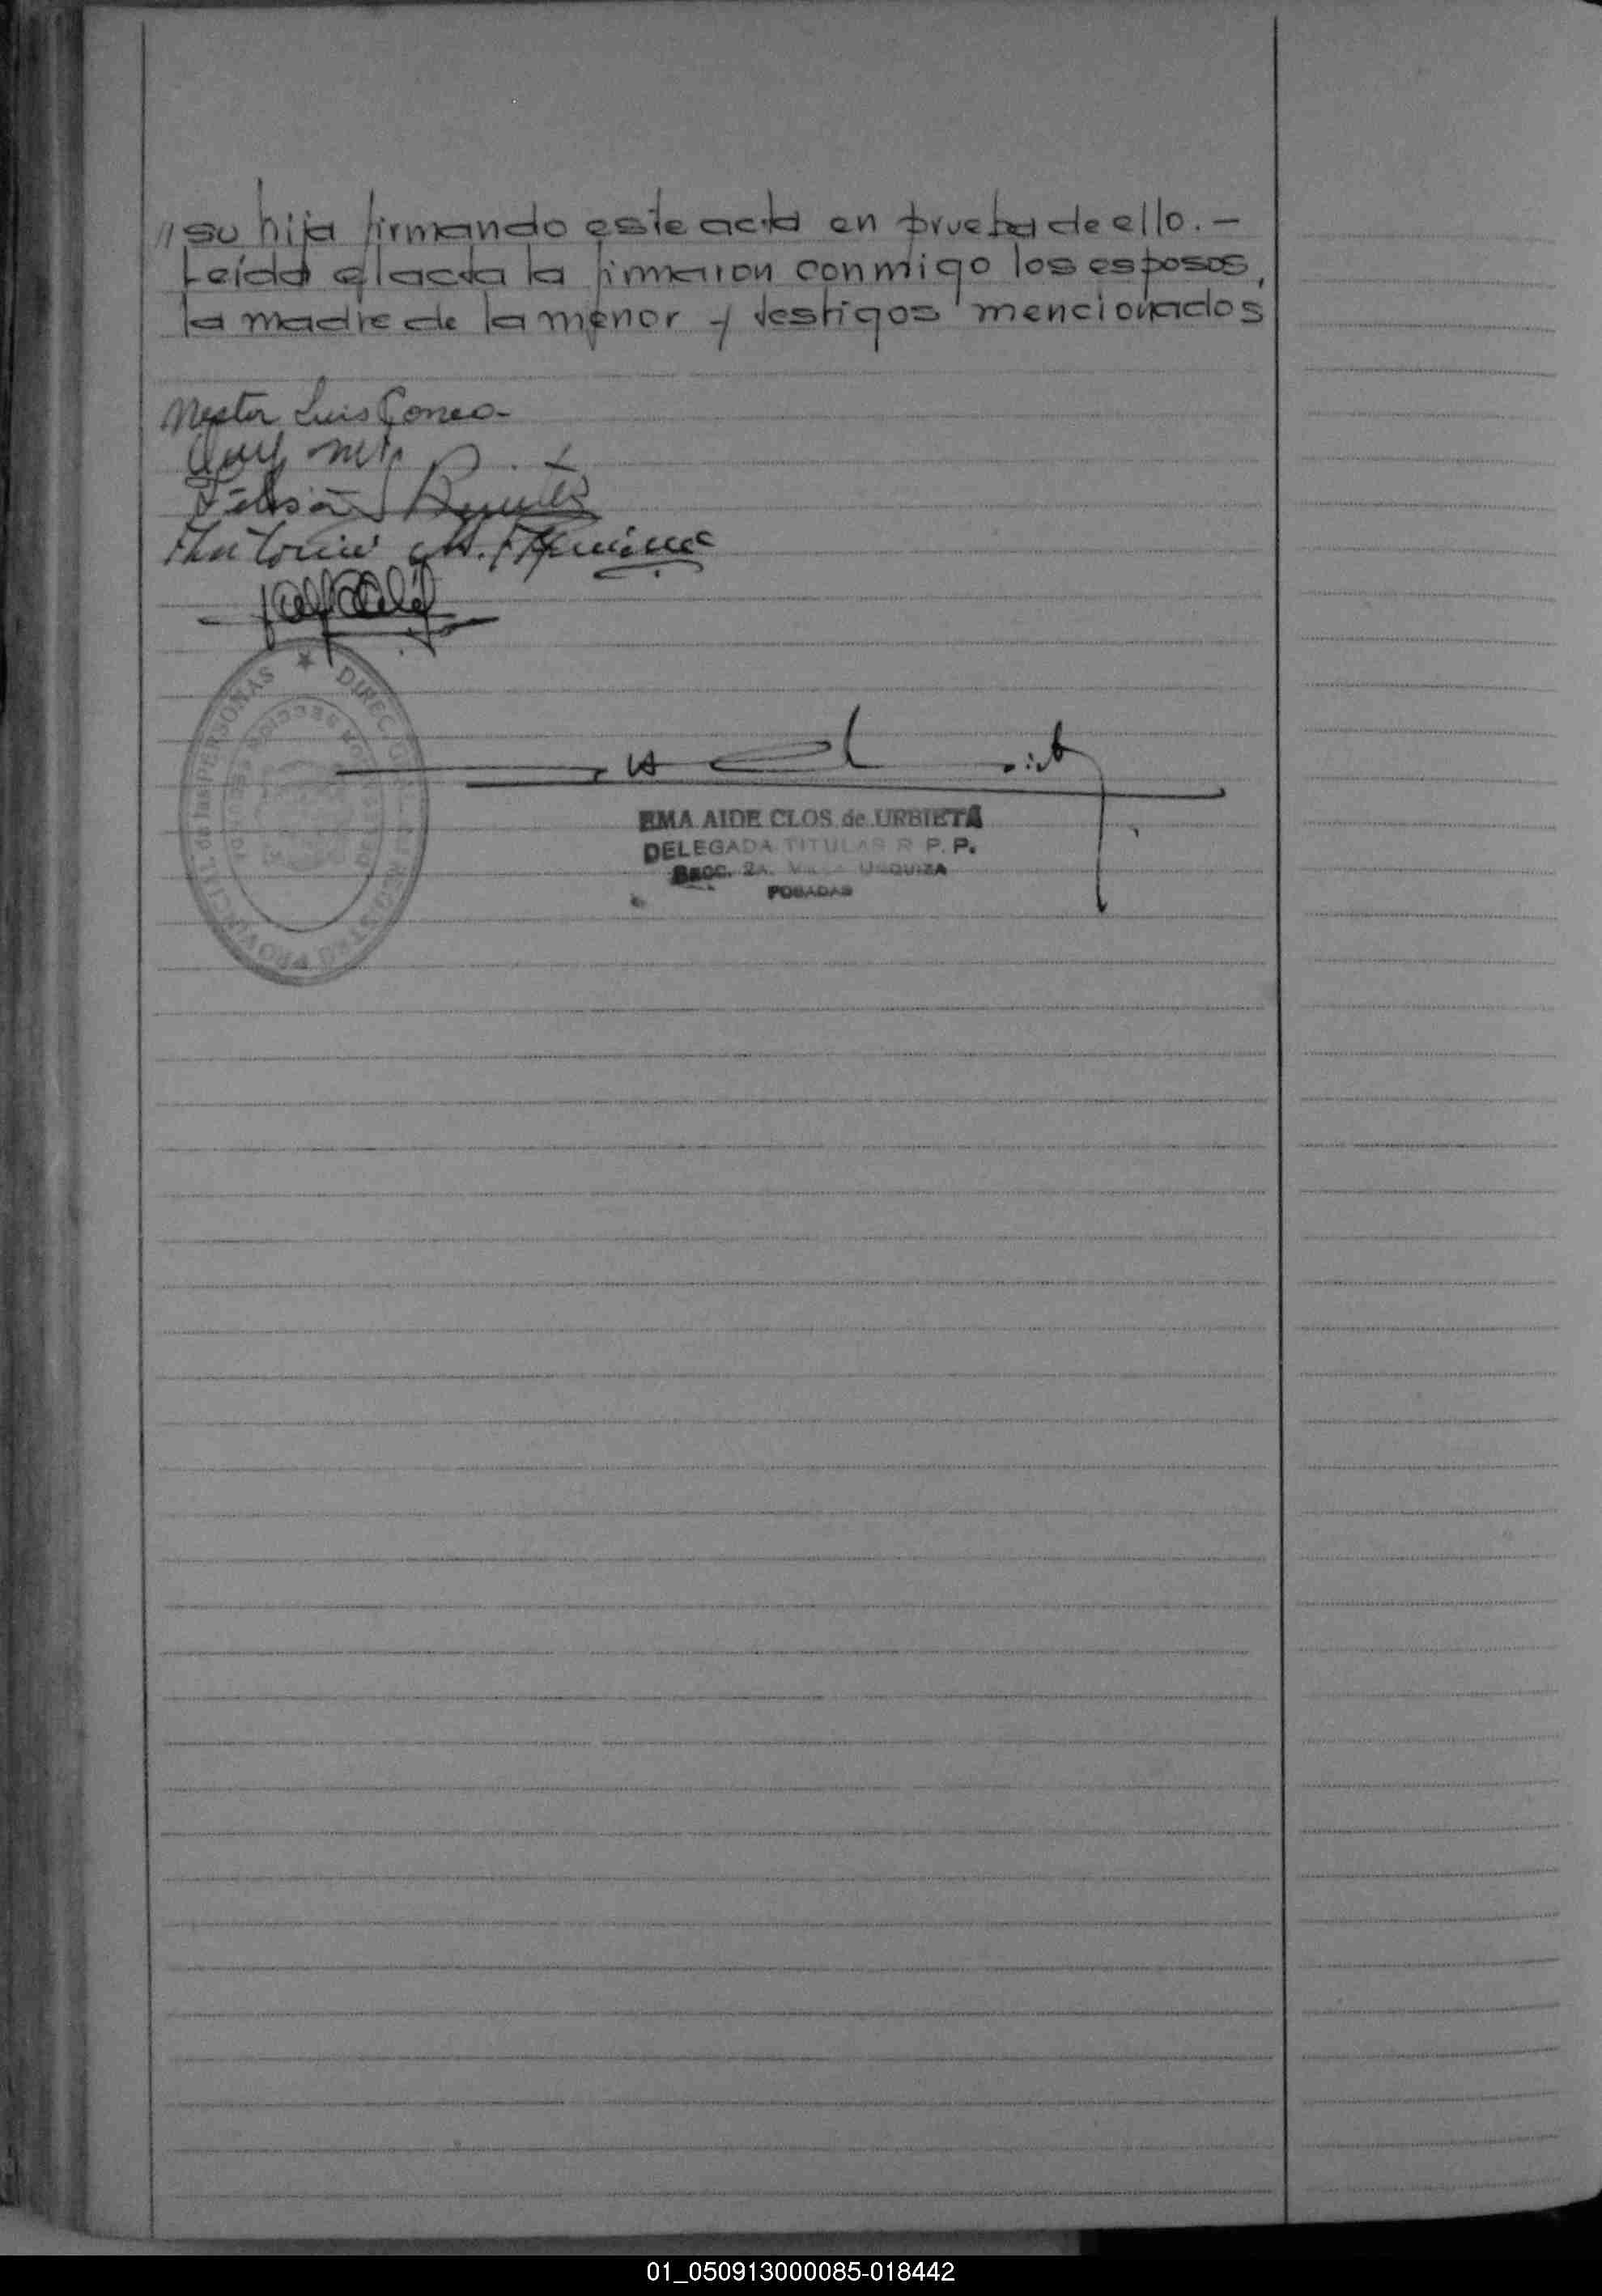 // su hija firmando este acta en prueba de ello. -
Leída el acta la firmaron conmigo los esposos,
la madre de la menor y testigos mencionados
Nestor Luis
Benitez
Antonio
★ DIRECCION DEL REGISTRO PROVINCIAL de las PERSONAS
EMA AIDE CLOS de URBIETA
DELEGADA TITULAR R. P. P.
Secc. 2a. VILLA URQUIZA
POSADAS
01_050913000085-018442